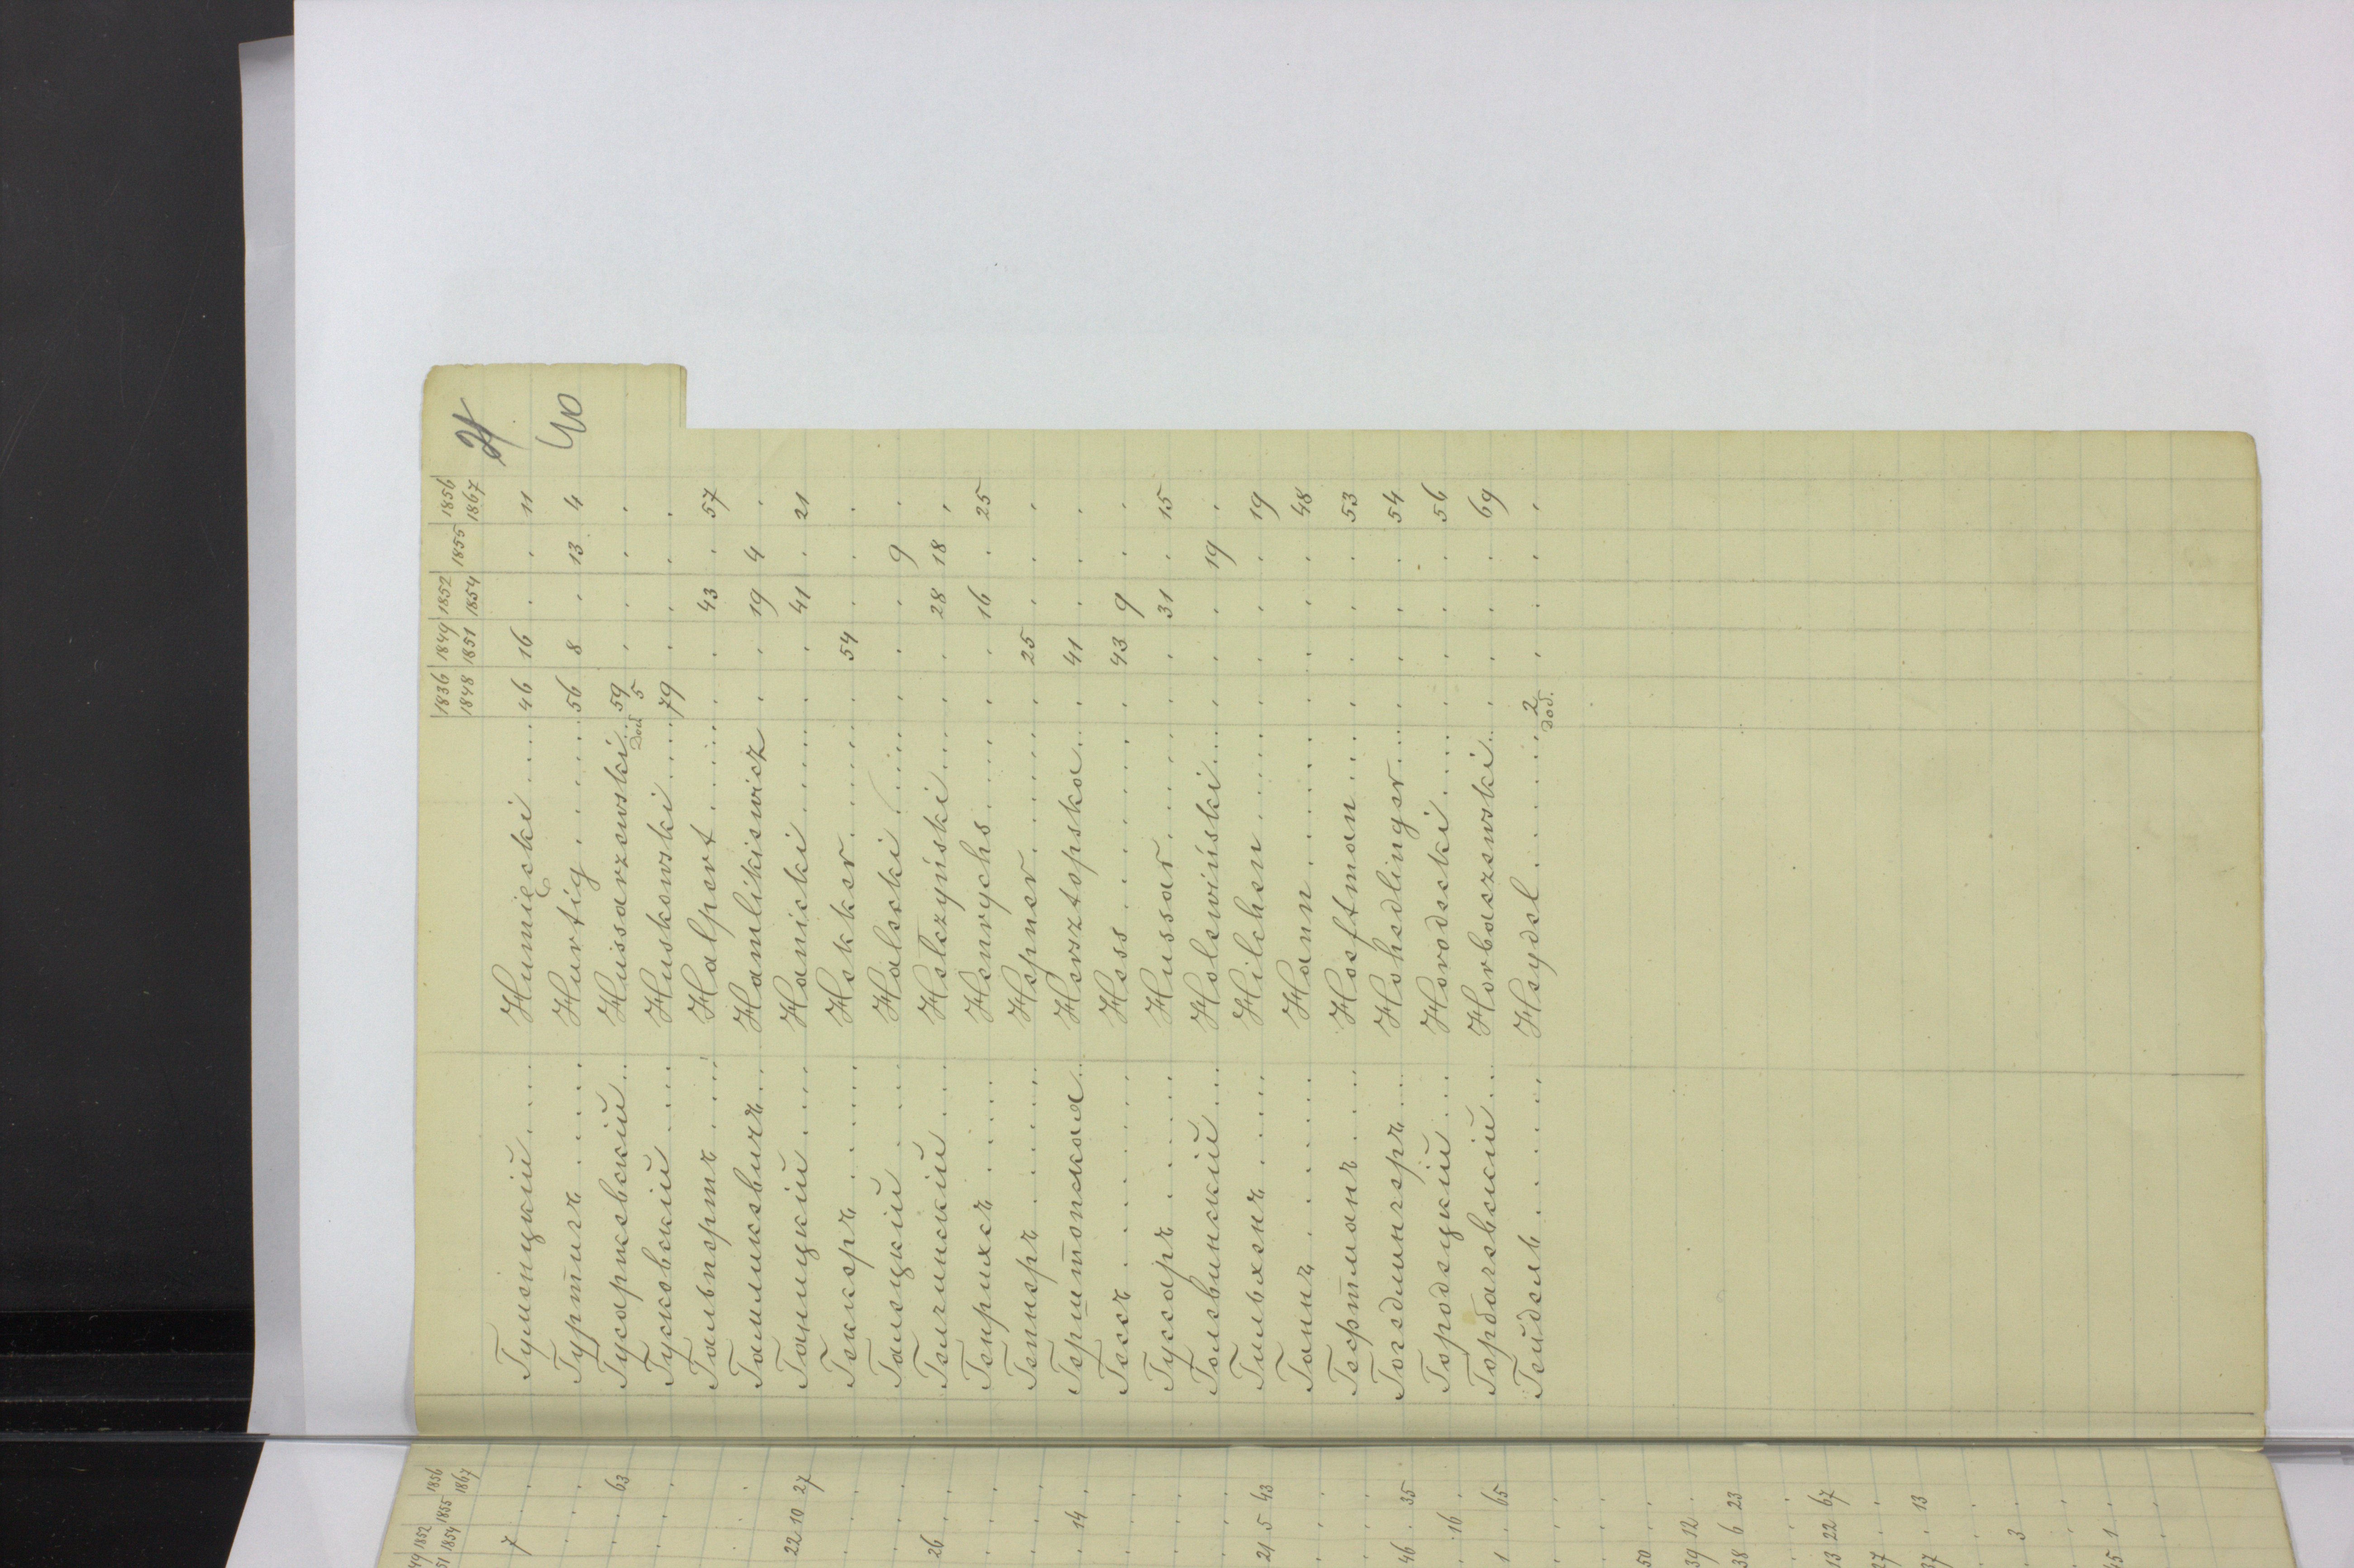 1836 1848 | 1849 1851 | 1852 1854 | 1855 | 1856 1867
H
Гуменцкій .... Humięcki .... 46 16 . . 11
Гуртигъ .... Hurtig .... 56 8 . 13 4
Гусаржевскій .. Hussarzewski .. 59 dod 5 . . . .
Гусковскій .... Huskowski .... 79 . . . .
Гальпертъ .... Halpert .... . . 43 . 57
Гамликевичъ ... Hamlikiewicz . . 19 4 .
Ганицкій .... Hanicki .... . . 41 . 21
Геккеръ .... Hekker .... . 54 . . .
Галецкій .... Halecki .... . . . 9 .
Гелчинскій .... Hełczyński .... . . 28 18 .
Генрихсъ .... Henrychs .... . . 16 . 25
Гепнеръ .... Hepner .... . 25 . . .
Герштопская .. Hersztopska ... . 41 . . .
Гессъ .... Hess .... . 43 9 . .
Гуссаръ .... Hussar .... . . 31 . 15
Голевинскій ... Holewiński ... . . . 19 .
Гильхенъ .... Hilchen .... . . . . 19
Ганнъ .... Hann .... . . . . 48
Гефтманъ .... Hoeftman .... . . . . 53
Гогедлингеръ ... Hohedlinger ... . . . . 54
Городецкій .... Horodecki .... . . . . 56
Горбачевскій ... Horbaczewski .. . . . . 69
Гейдель .... Heydel .... 2 dod. . . . .
1852 1854 | 1855 | 1856 1867
7 . .
. . 63
22 10 27
26 . .
. 14 .
21 5 43
46 . 35
. 16 .
1 . 65
50 . .
39 12 .
38 6 23
13 22 67
27 . .
37 . 13
3 .
15 1 .